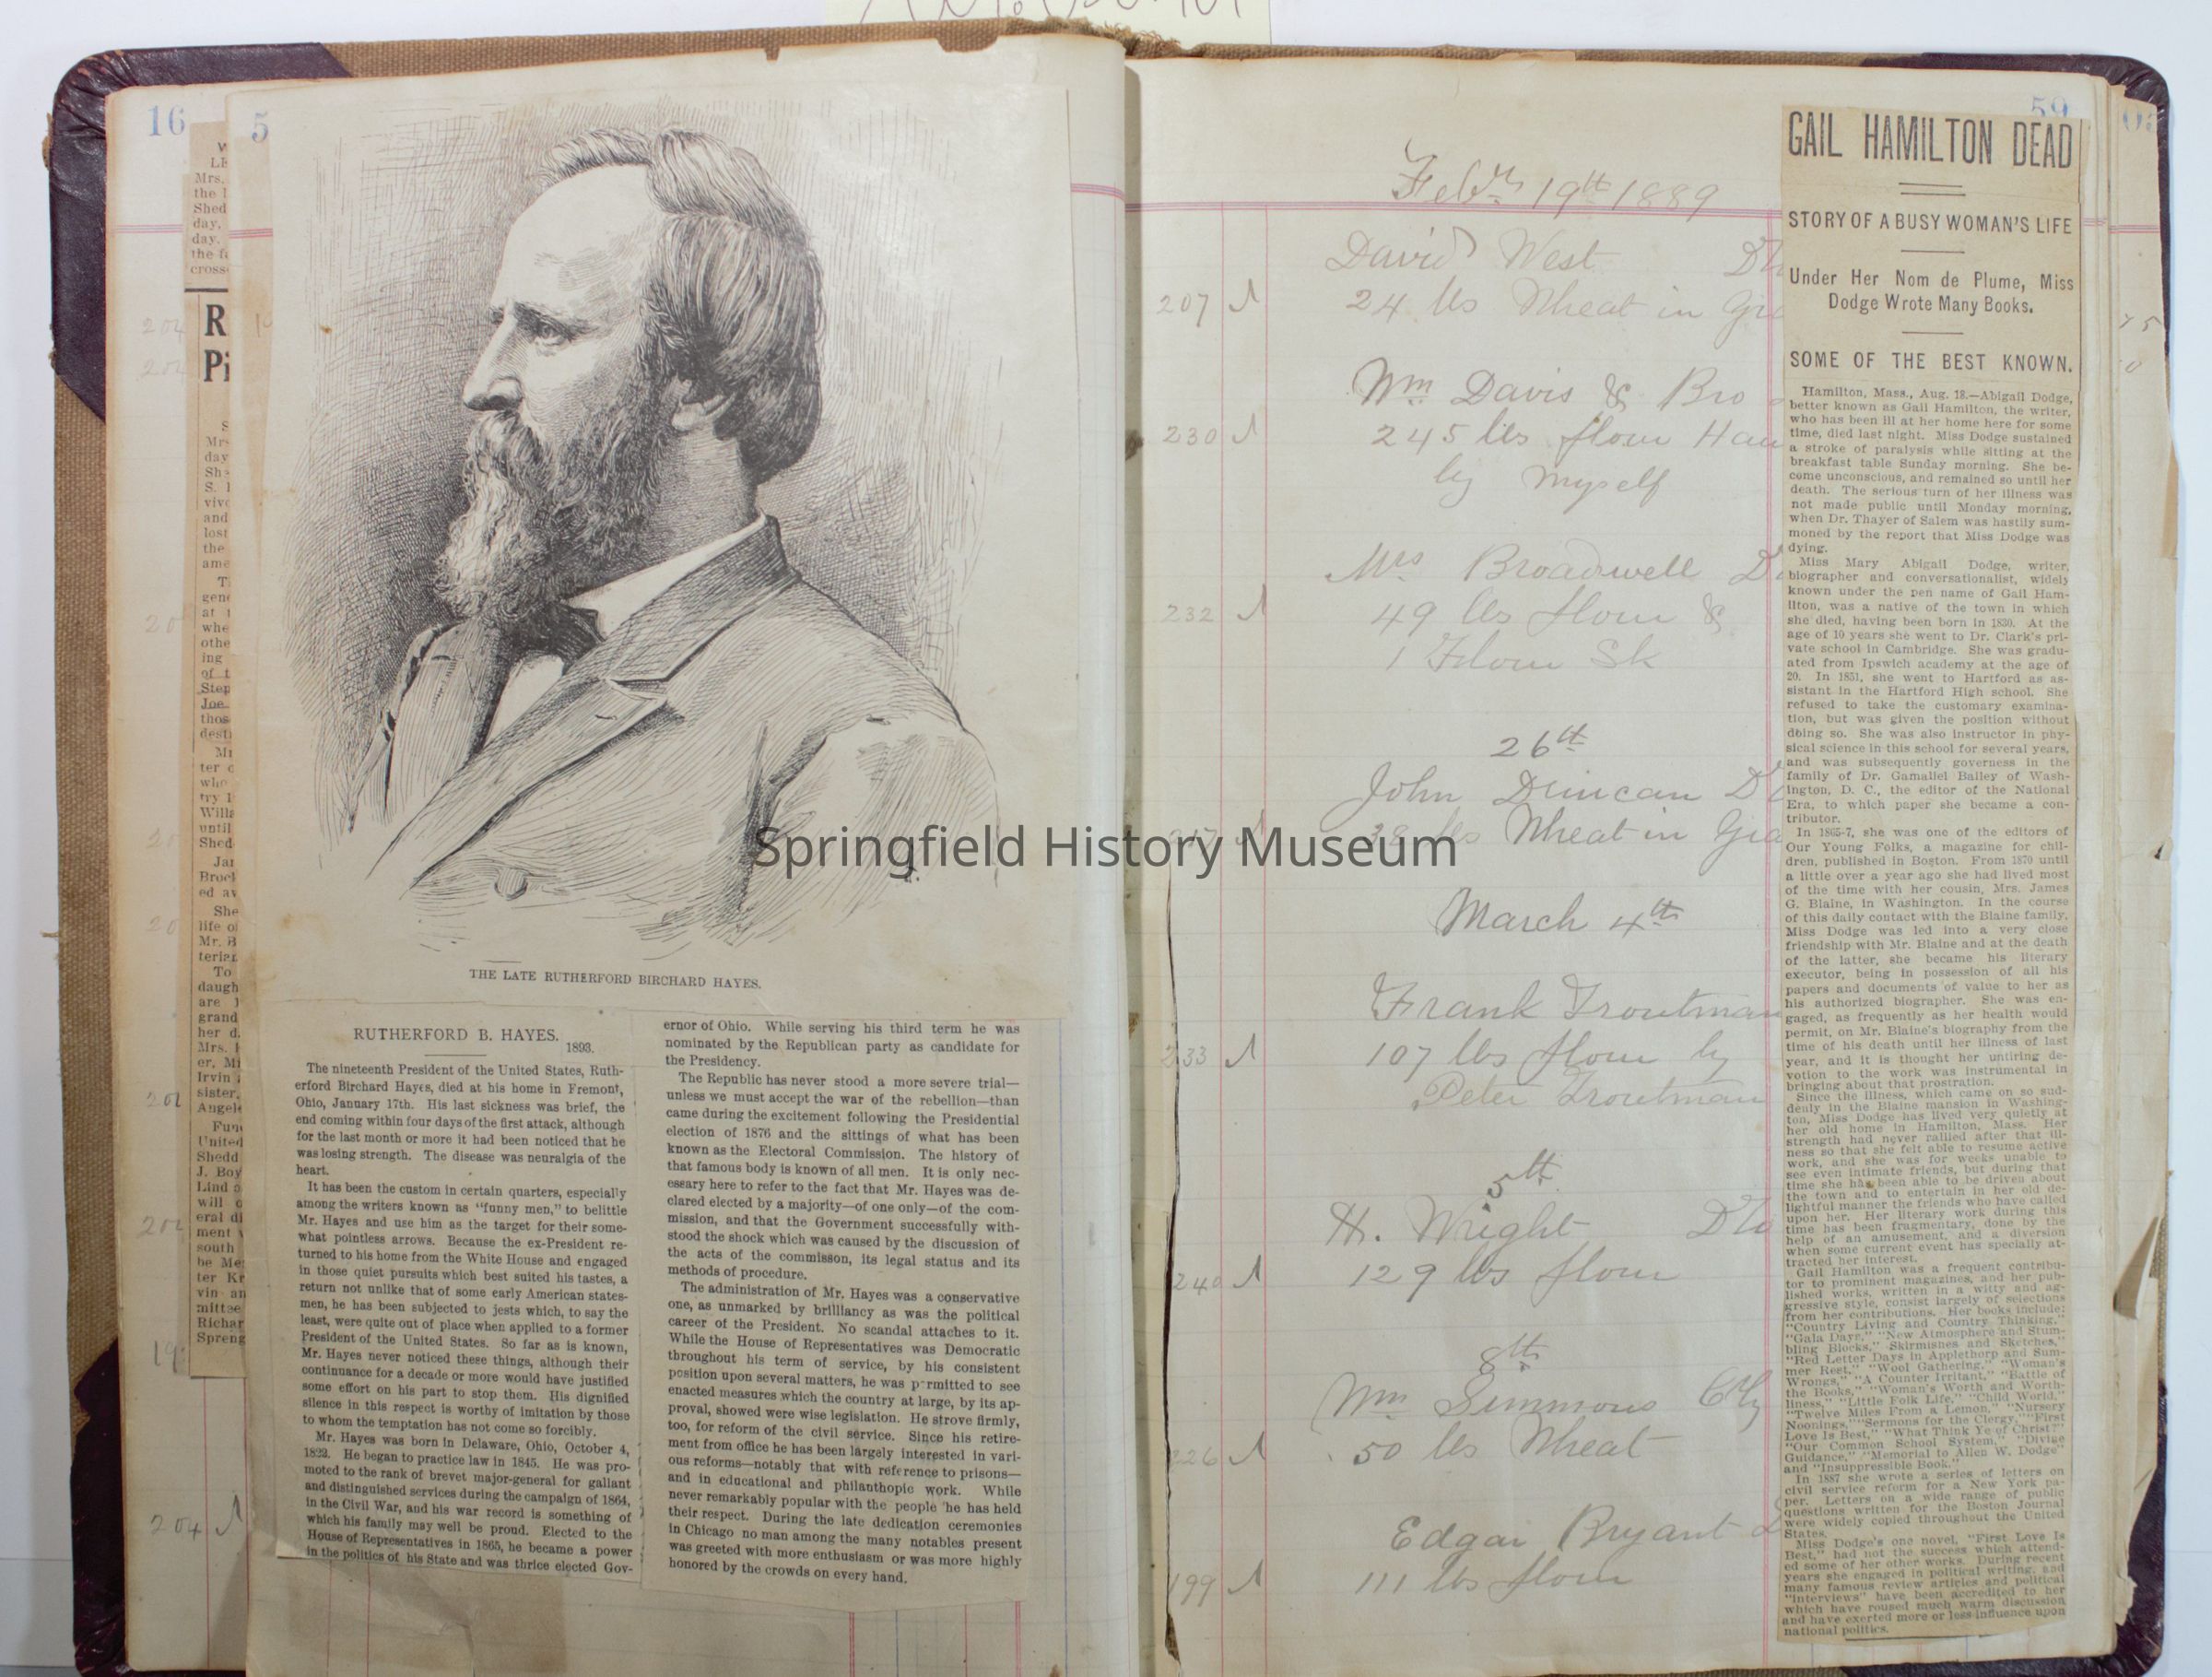 16
5
THE LATE RUTHERFORD BIRCHARD HAYES.
RUTHERFORD B. HAYES.
1893.
The nineteenth President of the United States, Ruth-
erford Birchard Hayes, died at his home in Fremont,
Ohio, January 17th. His last sickness was brief, the
end coming within four days of the first attack, although
for the last month or more it had been noticed that he
was losing strength. The disease was neuralgia of the
heart.
It has been the custom in certain quarters, especially
among the writers known as "funny men," to belittle
Mr. Hayes and use him as the target for their some-
what pointless arrows. Because the ex-President re-
turned to his home from the White House and engaged
in those quiet pursuits which best suited his tastes, a
return not unlike that of some early American states-
men, he has been subjected to jests which, to say the
least, were quite out of place when applied to a former
President of the United States. So far as is known,
Mr. Hayes never noticed these things, although their
continuance for a decade or more would have justified
some effort on his part to stop them. His dignified
silence in this respect is worthy of imitation by those
to whom the temptation has not come so forcibly.
Mr. Hayes was born in Delaware, Ohio, October 4,
1822. He began to practice law in 1845. He was pro-
moted to the rank of brevet major-general for gallant
and distinguished services during the campaign of 1864,
in the Civil War, and his war record is something of
which his family may well be proud. Elected to the
House of Representatives in 1865, he became a power
in the politics of his State and was thrice elected Gov-
ernor of Ohio. While serving his third term he was
nominated by the Republican party as candidate for
the Presidency.
The Republic has never stood a more severe trial—
unless we must accept the war of the rebellion—than
came during the excitement following the Presidential
election of 1876 and the sittings of what has been
known as the Electoral Commission. The history of
that famous body is known of all men. It is only nec-
essary here to refer to the fact that Mr. Hayes was de-
clared elected by a majority—of one only—of the com-
mission, and that the Government successfully with-
stood the shock which was caused by the discussion of
the acts of the commisson, its legal status and its
methods of procedure.
The administration of Mr. Hayes was a conservative
one, as unmarked by brilliancy as was the political
career of the President. No scandal attaches to it.
While the House of Representatives was Democratic
throughout his term of service, by his consistent
position upon several matters, he was permitted to see
enacted measures which the country at large, by its ap-
proval, showed were wise legislation. He strove firmly,
too, for reform of the civil service. Since his retire-
ment from office he has been largely interested in vari-
ous reforms—notably that with reference to prisons—
and in educational and philanthopic work. While
never remarkably popular with the people he has held
their respect. During the late dedication ceremonies
in Chicago no man among the many notables present
was greeted with more enthusiasm or was more highly
honored by the crowds on every hand.
59
Feby 19th 1889
David West
207 24 lbs Wheat in
Wm Davis & Bro
230 245 lbs flour
by myself
Mrs Broadwell
232 49 lbs flour &
1 Flour Sk
26th
John Duncan
38 lbs Wheat in
March 4th
Frank Troutman
233 107 lbs flour by
Peter Troutman
5th
H. Wright
240 129 lbs flour
8th
Wm Simmons City
226 50 lbs Wheat
Edgar Bryant
199 111 lbs flour
204
GAIL HAMILTON DEAD
STORY OF A BUSY WOMAN'S LIFE
Under Her Nom de Plume, Miss
Dodge Wrote Many Books.
SOME OF THE BEST KNOWN.
Hamilton, Mass., Aug. 18.—Abigail Dodge,
better known as Gail Hamilton, the writer,
who has been ill at her home here for some
time, died last night. Miss Dodge sustained
a stroke of paralysis while sitting at the
breakfast table Sunday morning. She be-
come unconscious, and remained so until her
death. The serious turn of her illness was
not made public until Monday morning,
when Dr. Thayer of Salem was hastily sum-
moned by the report that Miss Dodge was
dying.
Miss Mary Abigail Dodge, writer,
biographer and conversationalist, widely
known under the pen name of Gail Ham-
ilton, was a native of the town in which
she died, having been born in 1830. At the
age of 10 years she went to Dr. Clark's pri-
vate school in Cambridge. She was gradu-
ated from Ipswich academy at the age of
20. In 1851, she went to Hartford as as-
sistant in the Hartford High school. She
refused to take the customary examina-
tion, but was given the position without
doing so. She was also instructor in phy-
sical science in this school for several years,
and was subsequently governess in the
family of Dr. Gamaliel Bailey of Wash-
ington, D. C., the editor of the National
Era, to which paper she became a con-
tributor.
In 1865-7, she was one of the editors of
Our Young Folks, a magazine for chil-
dren, published in Boston. From 1870 until
a little over a year ago she had lived most
of the time with her cousin, Mrs. James
G. Blaine, in Washington. In the course
of this daily contact with the Blaine family,
Miss Dodge was led into a very close
friendship with Mr. Blaine and at the death
of the latter, she became his literary
executor, being in possession of all his
papers and documents of value to her as
his authorized biographer. She was en-
gaged, as frequently as her health would
permit, on Mr. Blaine's biography from the
time of his death until her illness of last
year, and it is thought her untiring de-
votion to the work was instrumental in
bringing about that prostration.
Since the illness, which came on so sud-
denly in the Blaine mansion in Washing-
ton, Miss Dodge has lived very quietly at
her old home in Hamilton, Mass. Her
strength had never rallied after that ill-
ness so that she felt able to resume active
work, and she was for weeks unable to
see even intimate friends, but during that
time she has been able to be driven about
the town and to entertain in her old de-
lightful manner the friends who have called
upon her. Her literary work during this
time has been fragmentary, done by the
help of an amusement, and a diversion
when some current event has specially at-
tracted her interest.
Gail Hamilton was a frequent contribu-
tor to prominent magazines, and her pub-
lished works, written in a witty and ag-
gressive style, consist largely of selections
from her contributions. Her books include:
"Country Living and Country Thinking,"
"Gala Days," "New Atmosphere and Stum-
bling Blocks," Skirmishes and Sketches,"
"Red Letter Days in Applethorp and Sum-
mer Rest," "Wool Gathering," "Woman's
Wrongs," "A Counter Irritant," "Battle of
the Books," "Woman's Worth and Worth-
liness," "Little Folk Life," "Child World,"
"Twelve Miles From a Lemon," "Nursery
Noonings," "Sermons for the Clergy," "First
Love Is Best," "What Think Ye of Christ?"
"Our Common School System," "Divine
Guidance," "Memorial to Allen W. Dodge"
and "Insuppressible Book."
In 1887 she wrote a series of letters on
civil service reform for a New York pa-
per. Letters on a wide range of public
questions written for the Boston Journal
were widely copied throughout the United
States.
Miss Dodge's one novel, "First Love Is
Best," had not the success which attend-
ed some of her other works. During recent
years she engaged in political writing, and
many famous review articles and political
"interviews" have been accredited to her
which have roused much warm discussion
and have exerted more or less influence upon
national politics.
Springfield History Museum